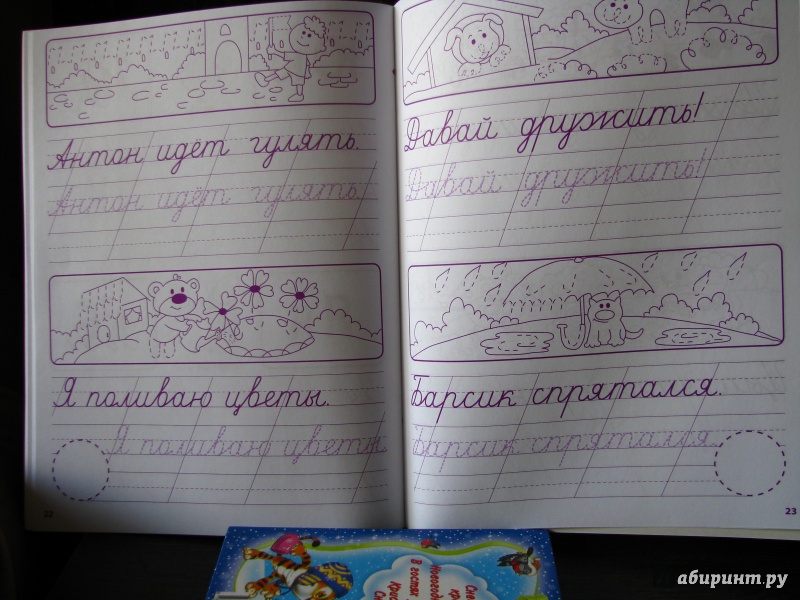 Антон идёт гулять.
Антон идёт гулять.
Я поливаю цветы.
Я поливаю цветы.
22
Давай дружить!
Давай дружить!
Барсик спрятался.
Барсик спрятался.
23
Новогод
В гостях
абиринт.ру